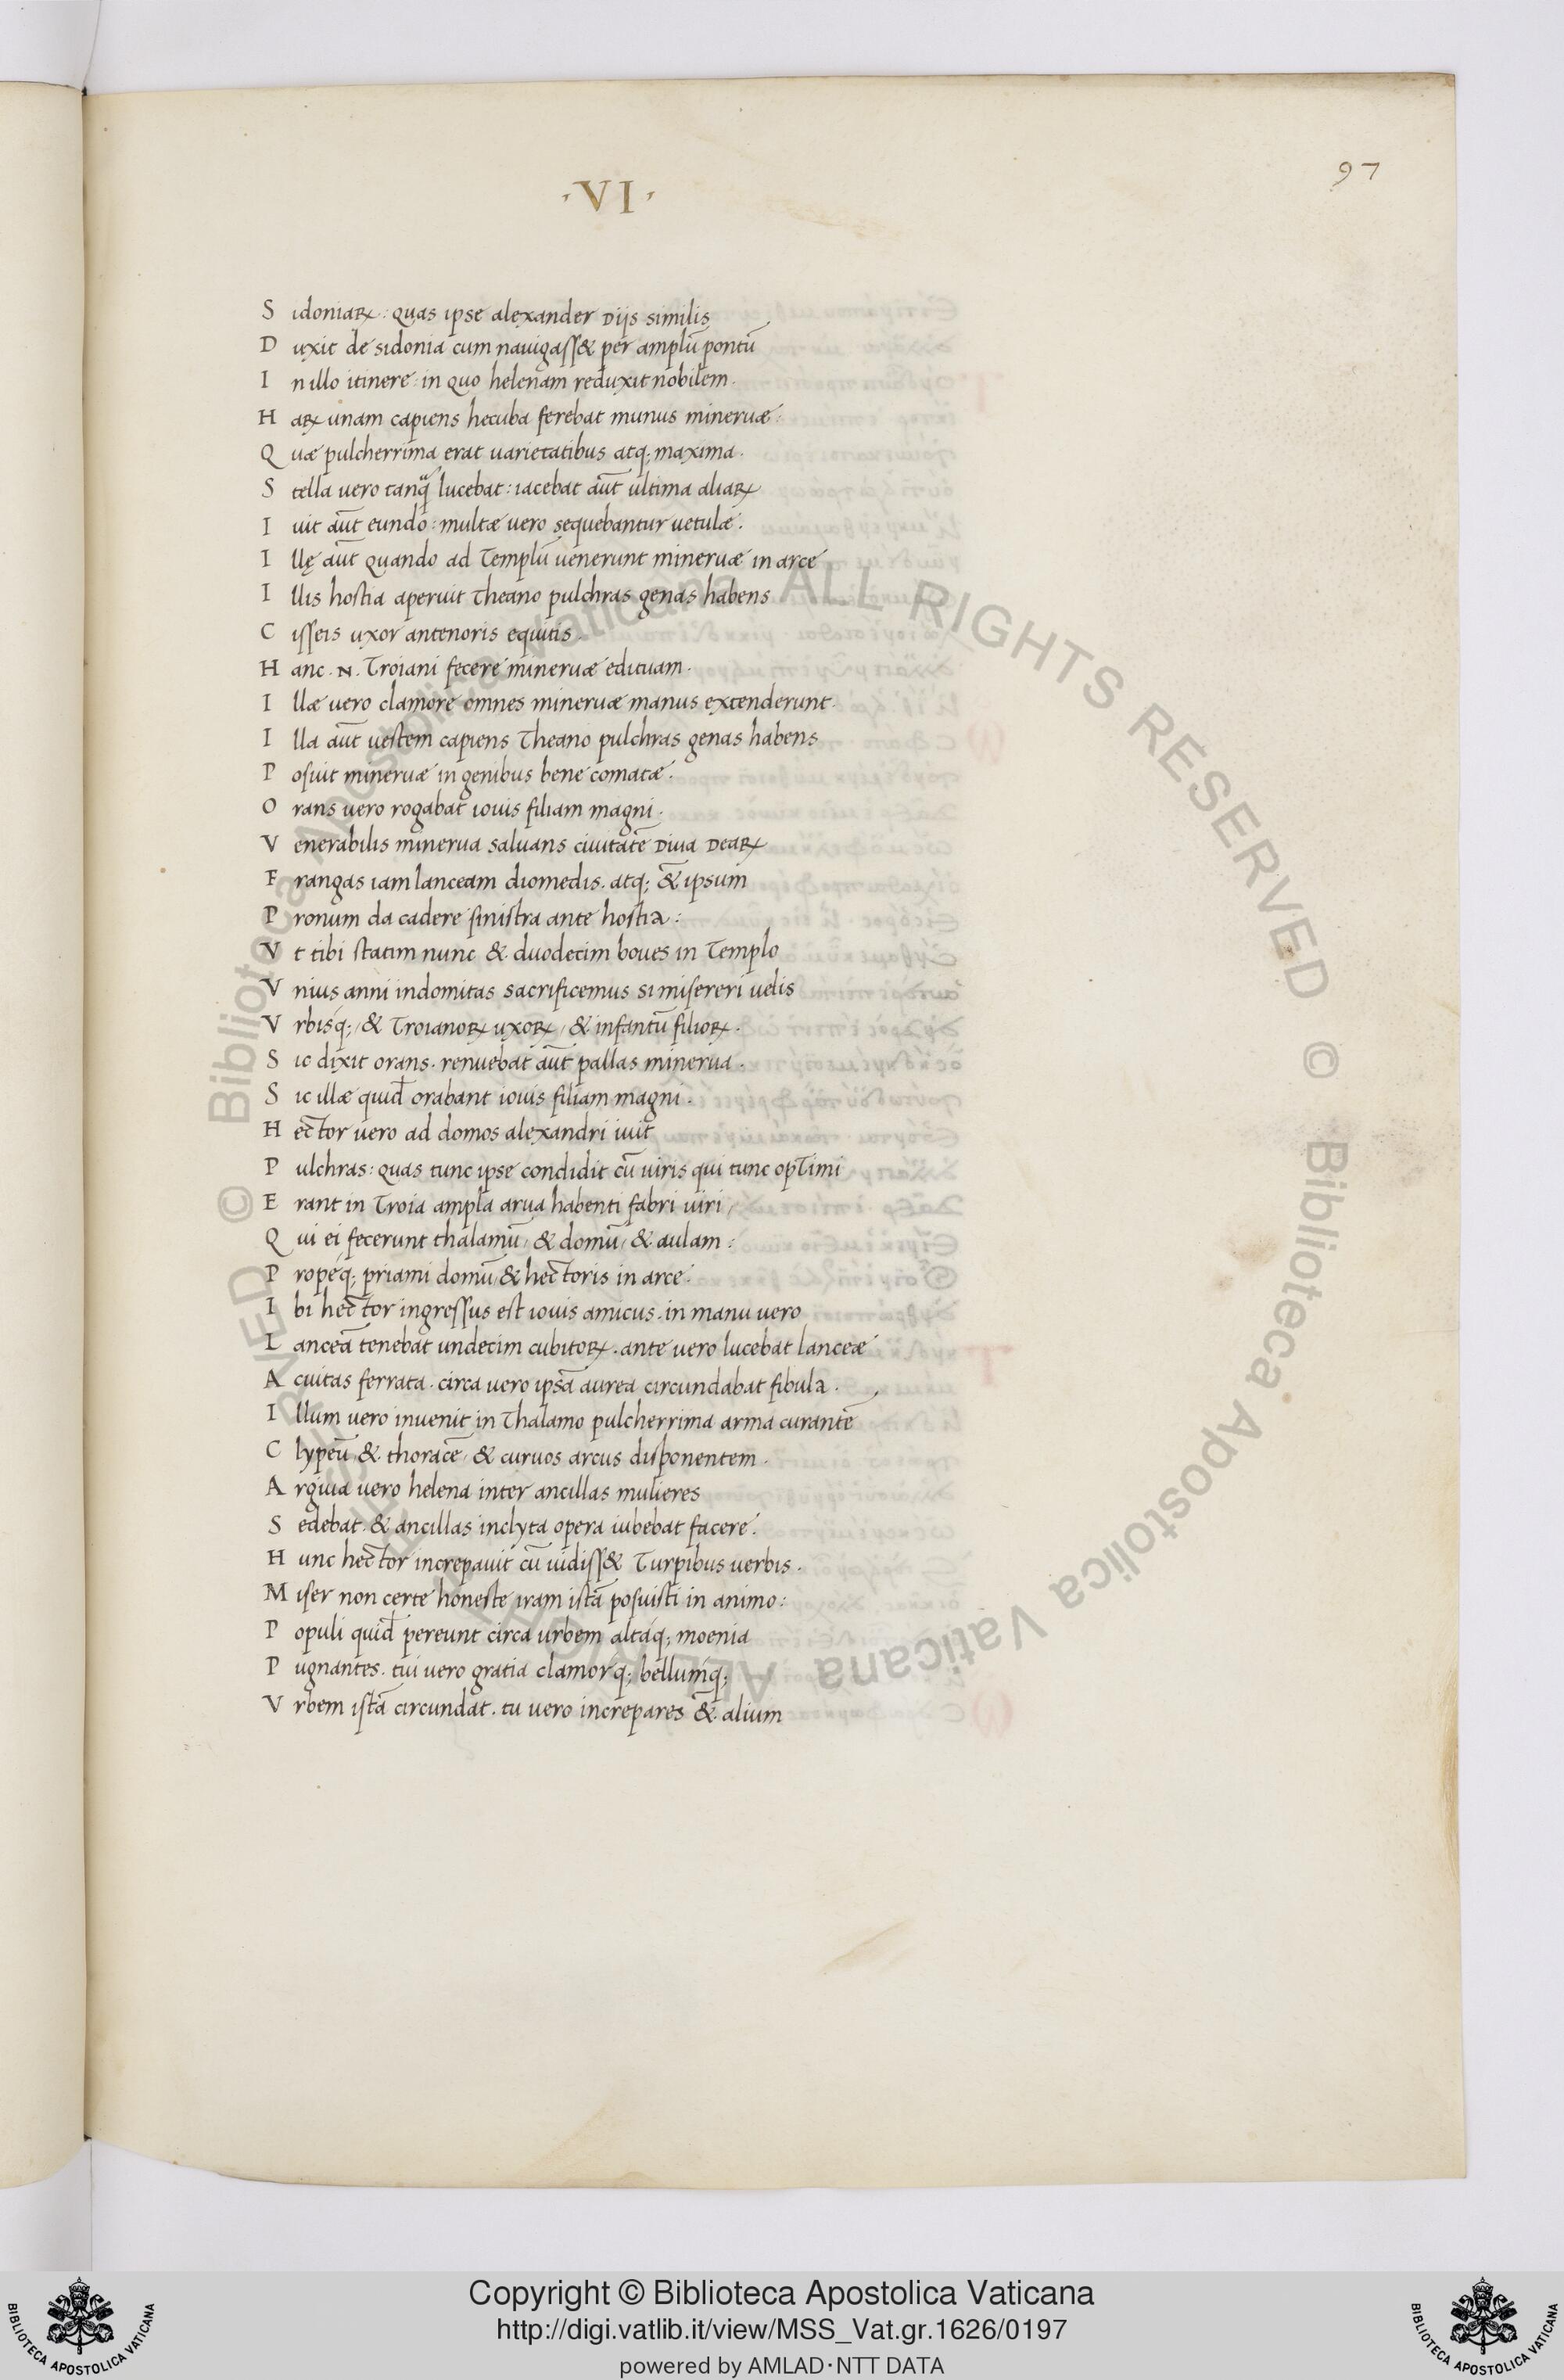 ·VI·
97
S idoniaꝝ : quas ipse alexander Dijs similis
D uxit de sidonia cum nauigass& per amplū pontū
I n illo itinere : in quo helenam reduxit nobilem .
H aꝝ unam capiens hecuba ferebat munus mineruæ :
Q uæ pulcherrima erat uarietatibus atq; maxima .
S tella uero tanq̈ lucebat : iacebat aūt ultima aliaꝝ
I uit aūt eundo : multæ uero sequebantur uetulæ .
I llę aūt quando ad Templū uenerunt mineruæ in arce
I llis hostia aperuit Theano pulchras genas habens
C isseis uxor antenoris equitis .
H anc . N . Troiani fecere mineruæ edituam .
I llæ uero clamore omnes mineruæ manus extenderunt .
I lla aūt uestem capiens Theano pulchras genas habens
P osuit mineruæ in genibus bene comatæ .
O rans uero rogabat iouis filiam magni .
V enerabilis minerua saluans ciuitatē Diua Deaꝝ
F rangas iam lanceam diomedis . atq; & ipsum
P ronum da cadere sinistra ante hostia :
V t tibi statim nunc & duodecim boues in Templo
V nius anni indomitas sacrificemus si misereri uelis
V rbisq; / & Troianoꝝ uxoꝝ / & infantū filioꝝ .
S ic dixit orans . renuebat aūt pallas minerua .
S ic illæ quid̄ orabant iouis filiam magni .
H ector uero ad domos alexandri iuit
P ulchras : quas tunc ipse condidit cū uiris qui tunc opTimi
E rant in Troia ampla arua habenti fabri uiri /
Q ui ei fecerunt thalamū / & domū / & aulam :
P ropeq; priami domū / & hectoris in arce .
I bi hector ingressus est iouis amicus . in manu uero
L anceā tenebat undecim cubitoꝝ . ante uero lucebat lanceæ
A cuitas ferrata . circa uero ipsā aurea circundabat fibula .
I llum uero inuenit in Thalamo pulcherrima arma curantē
C lypeū / & thoracē / & curuos arcus disponentem .
A rguia uero helena inter ancillas mulieres
S edebat . & ancillas inclyta opera iubebat facere .
H unc hector increpauit cū uidiss& Turpibus uerbis .
M iser non certe honeste iram istā posuisti in animo :
P opuli quid̄ pereunt circa urbem altaq; moenia
P ugnantes . tui uero gratia clamorq; bellumq;
V rbem istā circundat . tu uero increpares & alium
Copyright © Biblioteca Apostolica Vaticana
http://digi.vatlib.it/view/MSS_Vat.gr.1626/0197
powered by AMLAD·NTT DATA